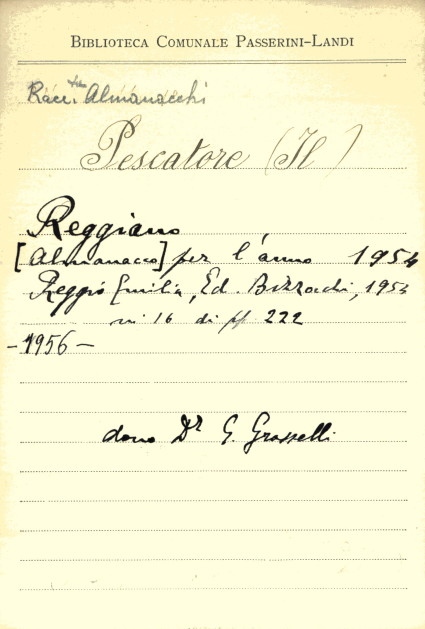 BIBLIOTECA COMUNALE PASSERINI-LANDI
Racc. Almanacchi
Pescatore (Il)
Reggiano
[Almanacco] per l'anno 1954
Reggio Emilia, Ed. Bizzocchi, 1953
in 16 di pp 222
-1956-
dono Dr G. Grasselli